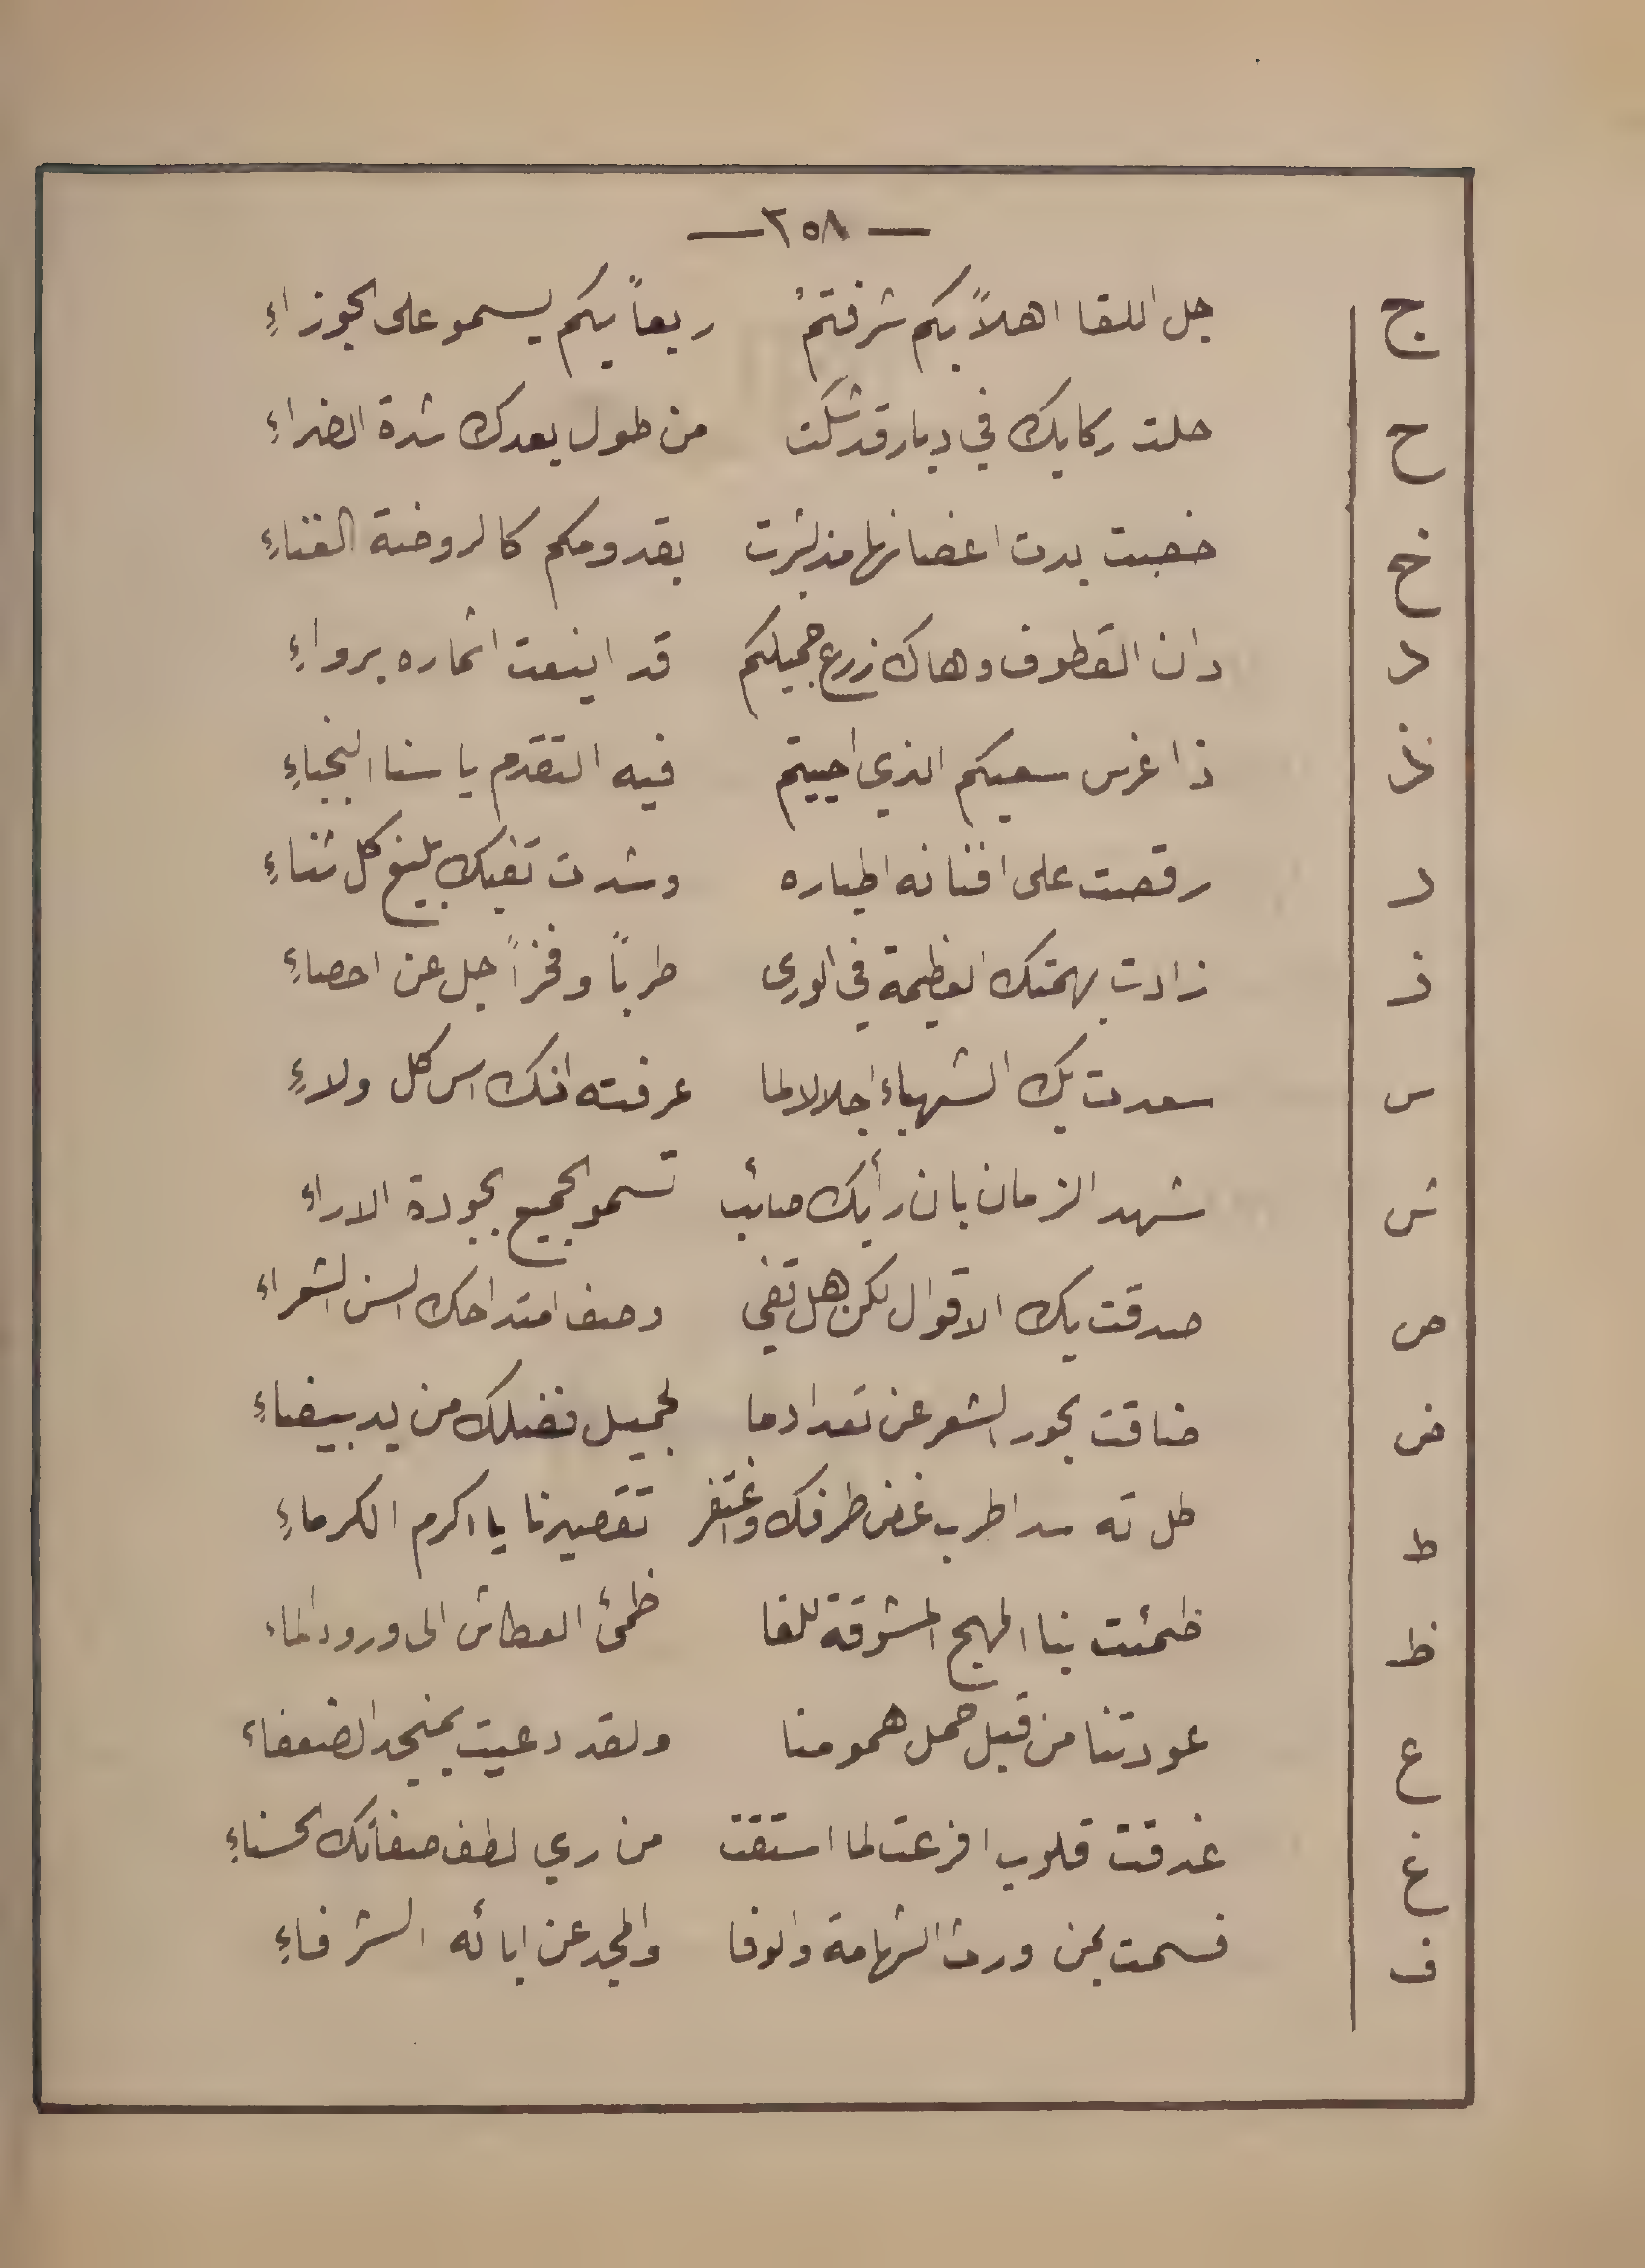 — ٣٥٨ —
ج جل اللقا اهلاً بكم شرفتمُ ربعاً بكم يسمو على الجوزاءِ
ح حلت ركابك في ديار قد شكت من طول بعدك شدة الضراءِ
خ خصبت بدت اغصانها مذ بشرت بقدومكم كالروضة الغناءِ
د دان القطوف وهاك زرع جميلكم قد اينعت اثماره برواءِ
ذ ذا غرس سعيكم الذي احييتم فيه التقدم يا سنا النجباءِ
ر رقصت على افنانه اطياره وشدت تفيك بليغ كل ثناءِ
ز زادت بهمتك العظيمة في الورى طرباً وفخراً جل عن احصاءِ
س سعدت بك الشهباء اجلالا لما عرفته انك اس كل ولاءِ
ش شهد الزمان بان رأيك صائب تسمو الجميع بجودة الاراء
ص صدقت بك الاقوال لكن هل تفي وصف امتداحك السن الشعراء
ض ضاقت بحور الشعر عن تعداد ما لجميل فضلك من يد بيضاءِ
ط طل ته سد اطرب غض طرفك واغتفر تقصيرنا يا اكرم الكرماءِ
ظ ظمئت بنا المهج المشوقة للقا ظمئ العطاش الى ورود الماء
ع عودتنا من قبل حمل همومنا ولقد دعيت بمنجد الضعفاء
غ غدقت قلوب افرعت لما استقت من ري لطف صفاتك الحسناءِ
ف فسمت بمن ورث الشهامة والوفا والمجد عن ابائه الشرفاءِ